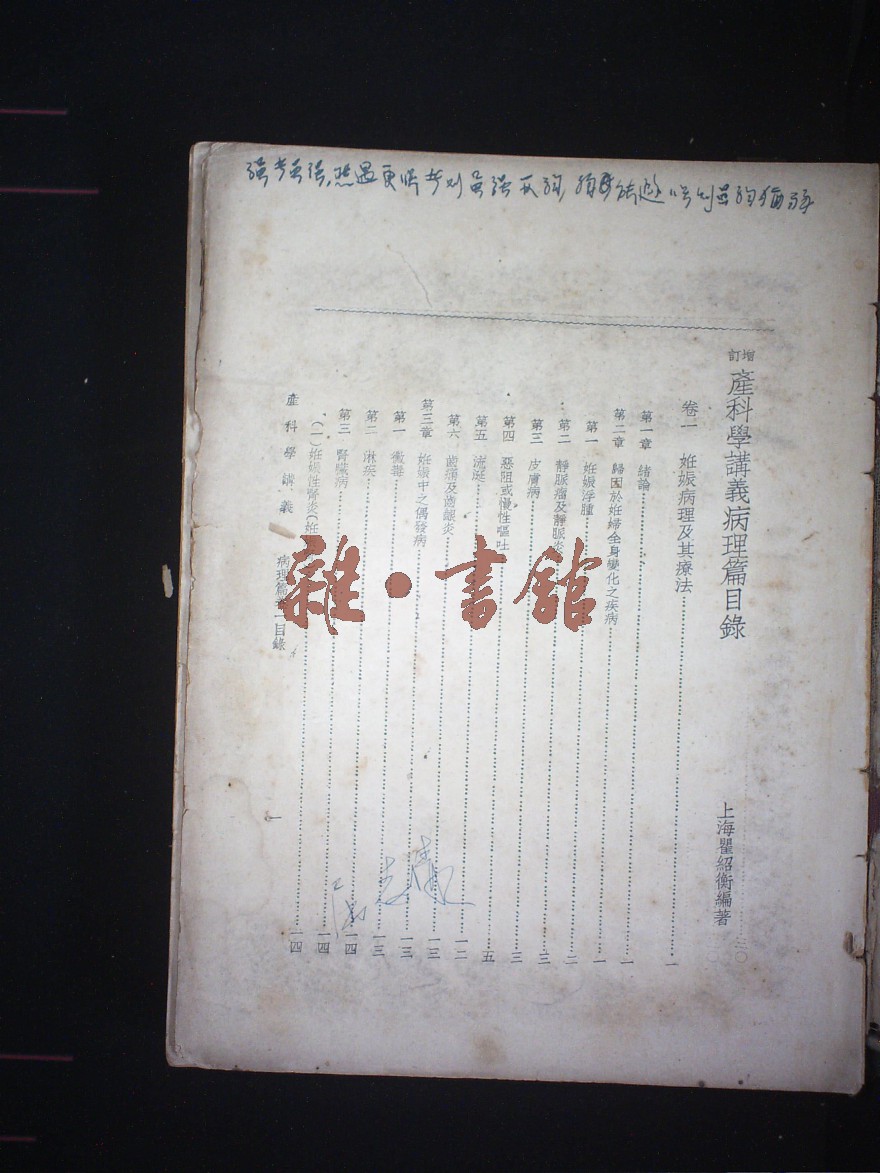 增訂 產科學講義病理篇目錄
上海瞿紹衡編著
卷一 妊娠病理及其療法 一
第一章 緒論 一
第二章 歸因於妊婦全身變化之疾病 一
第一 妊娠浮腫 一
第二 靜脈瘤及靜脈炎 二
第三 皮膚病 三
第四 惡阻或慢性嘔吐 三
第五 流涎 五
第六 齒痛及齒齦炎 一二
第三章 妊娠中之偶發病 一三
第一 黴毒 一三
第二 淋疾 一三
第三 腎臟病 一四
(一) 妊娠性腎炎(妊 一四
一四
產科學講義 病理篇卷一目錄 一
雜·書館